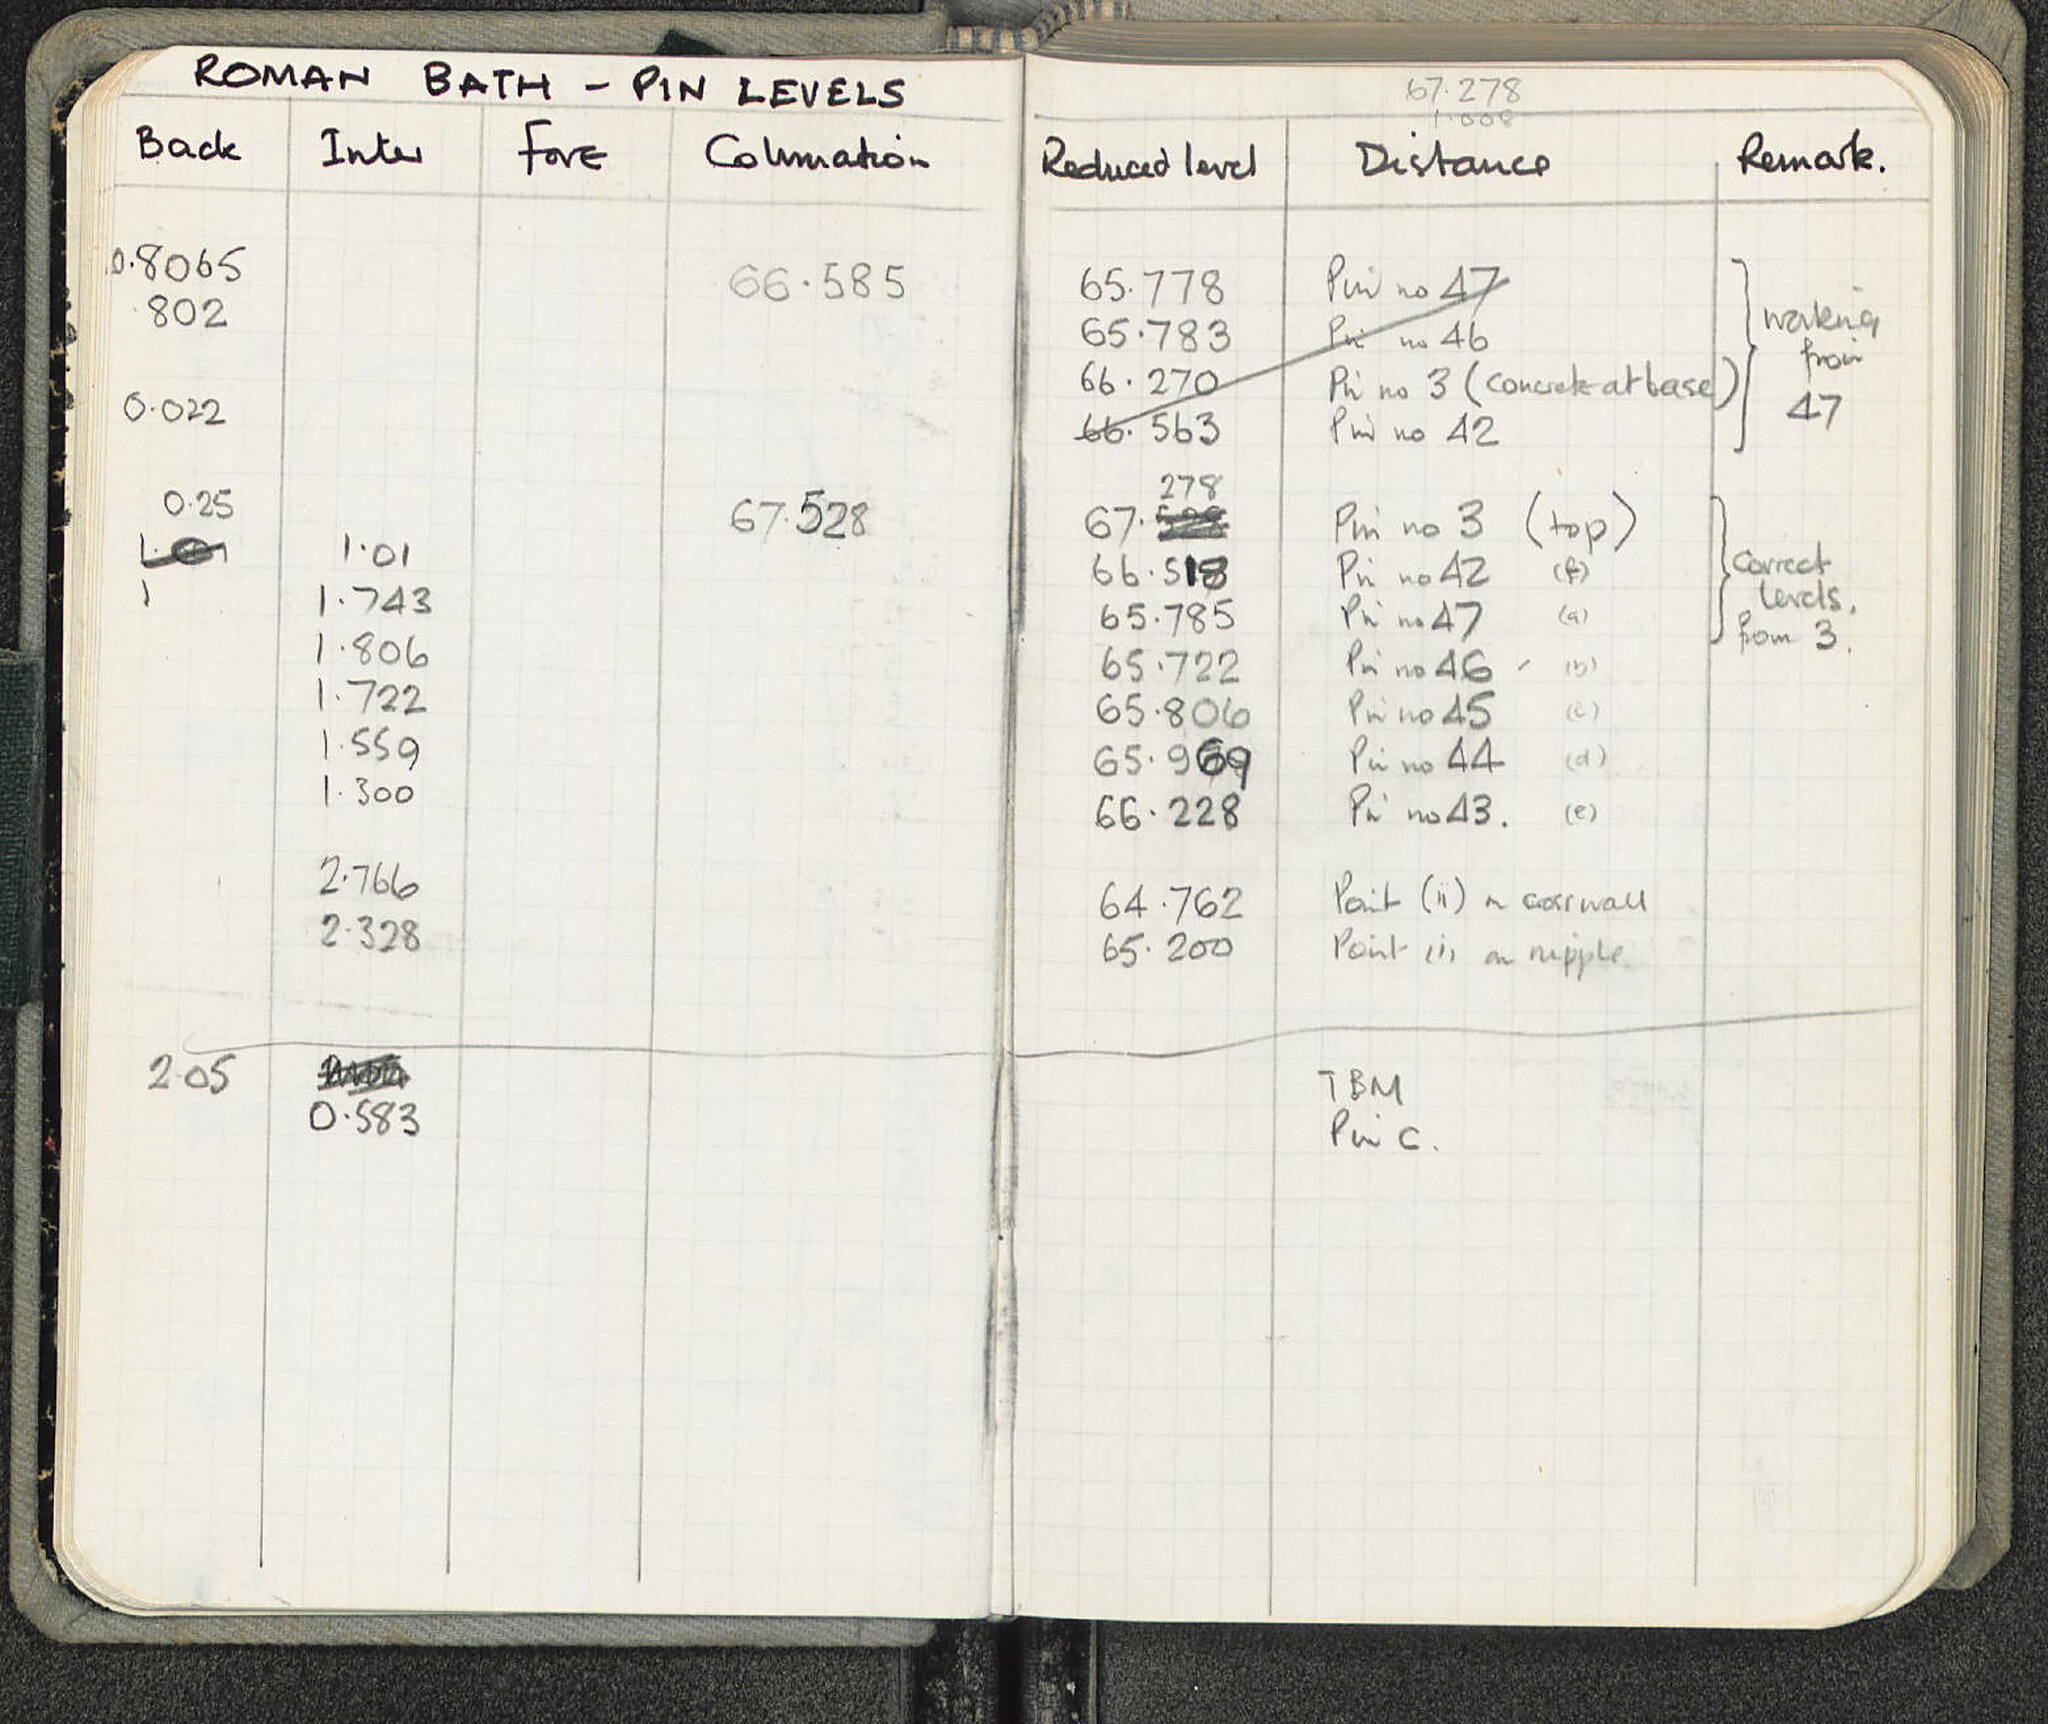 ROMAN BATH - PIN LEVELS
67.278
1.008
Back Inter Fore Colimation Reduced level Distance Remark.
0.8065 66.585 65.778 Pin no 47
.802 65.783 Pin no 46
66.270 Pin no 3 (concrete at base)
0.022 66.563 Pin no 42
working
from
47
278
0.25 67.528 67. Pin no 3 (top)
1.01 66.518 Pin no 42 (f)
1 1.743 65.785 Pin no 47 (a)
1.806 65.722 Pin no 46 (b)
1.722 65.806 Pin no 45 (c)
1.559 65.969 Pin no 44 (d)
1.300 66.228 Pin no 43. (e)
Correct
levels.
from 3.
2.766 64.762 Point (ii) on wall
2.328 65.200 Point (i) on nipple
2.05 TBM
0.583 Pin C.